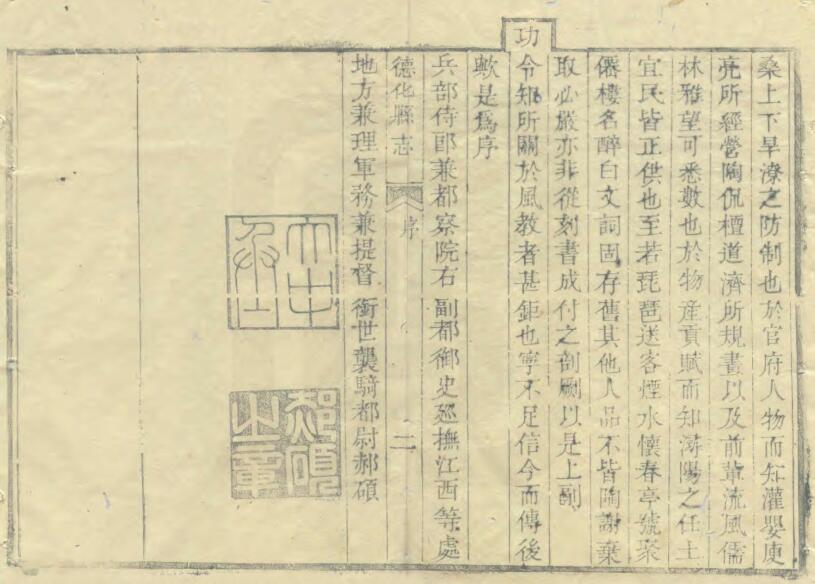 桑上下旱潦之防制也於官府人物而知灌嬰庾
亮所經營陶侃檀道濟所規畫以及前軰流風儒
林雅望可悉數也於物產貢賦而知潯陽之任土
宜民皆正供也至若琵琶送客煙水懷春亭號聚
僊樓名醉白文詞固存舊其他人品不皆陶謝棄
取必嚴亦非從刻書成付之剖劂以是上副
功令知所關於風教者甚鉅也寧不足信今而傳後
歟是爲序
兵部侍郎兼都察院右副都御史廵撫江西等處
德化縣志 序 二
地方兼理軍務兼提督銜世襲騎都尉郝碩
郝碩之章